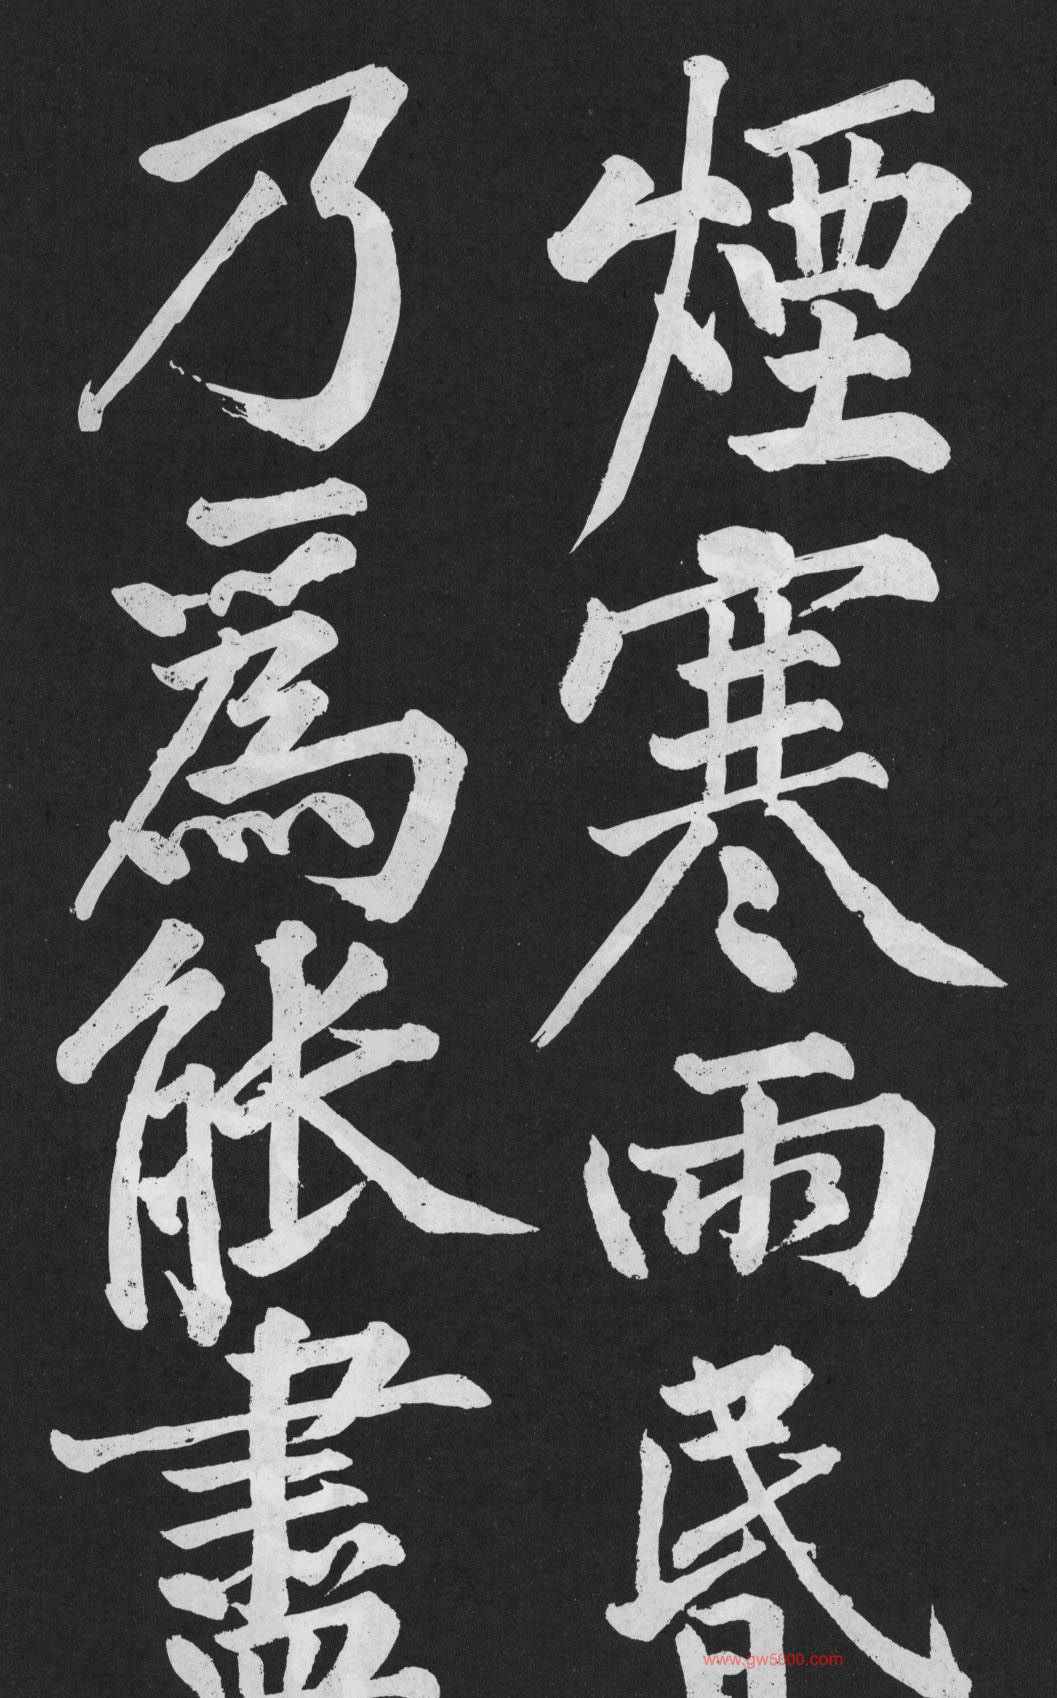 煙寒雨昬
乃爲能盡
www.gw5000.com